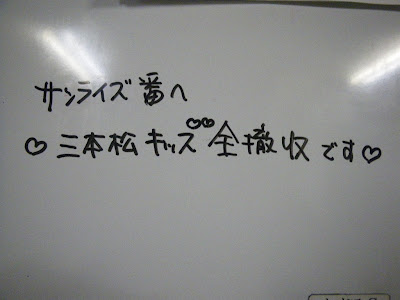 サンライズ番へ
♡三本松キッズ♡♡全撤収です♡